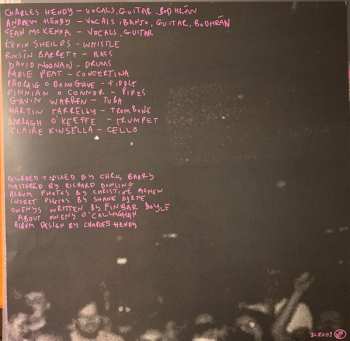 CHARLES HENDY – VOCALS, GUITAR, BODHRÁN
ANDREW HENDY – VOCALS, BANJO, GUITAR, BODHRÁN
SEAN MCKENNA – VOCALS, GUITAR
KEVIN SHEILDS – WHISTLE
ROISÍN BARRETT – BASS
DAVID NOONAN – DRUMS
RADIE PEAT – CONCERTINA
PADRAIG O DONOGHUE – FIDDLE
FINNIAN O CONNOR – PIPES
GAVIN WARREN – TUBA
MARTIN FARRELLY – TROMBONE
DARRAGH O'KEEFFE – TRUMPET
CLAIRE KINSELLA – CELLO
RECORDED + MIXED BY CHRIS BARRY
MASTERED BY RICHARD DOWLING
ALBUM PHOTOS BY CHRISTINE
INSERT PHOTOS BY SHANE
OWENYS WRITTEN BY FINBAR BOYLE
ABOUT OWENY O'CALLAGHAN
ALBUM DESIGN BY CHARLES HENDY